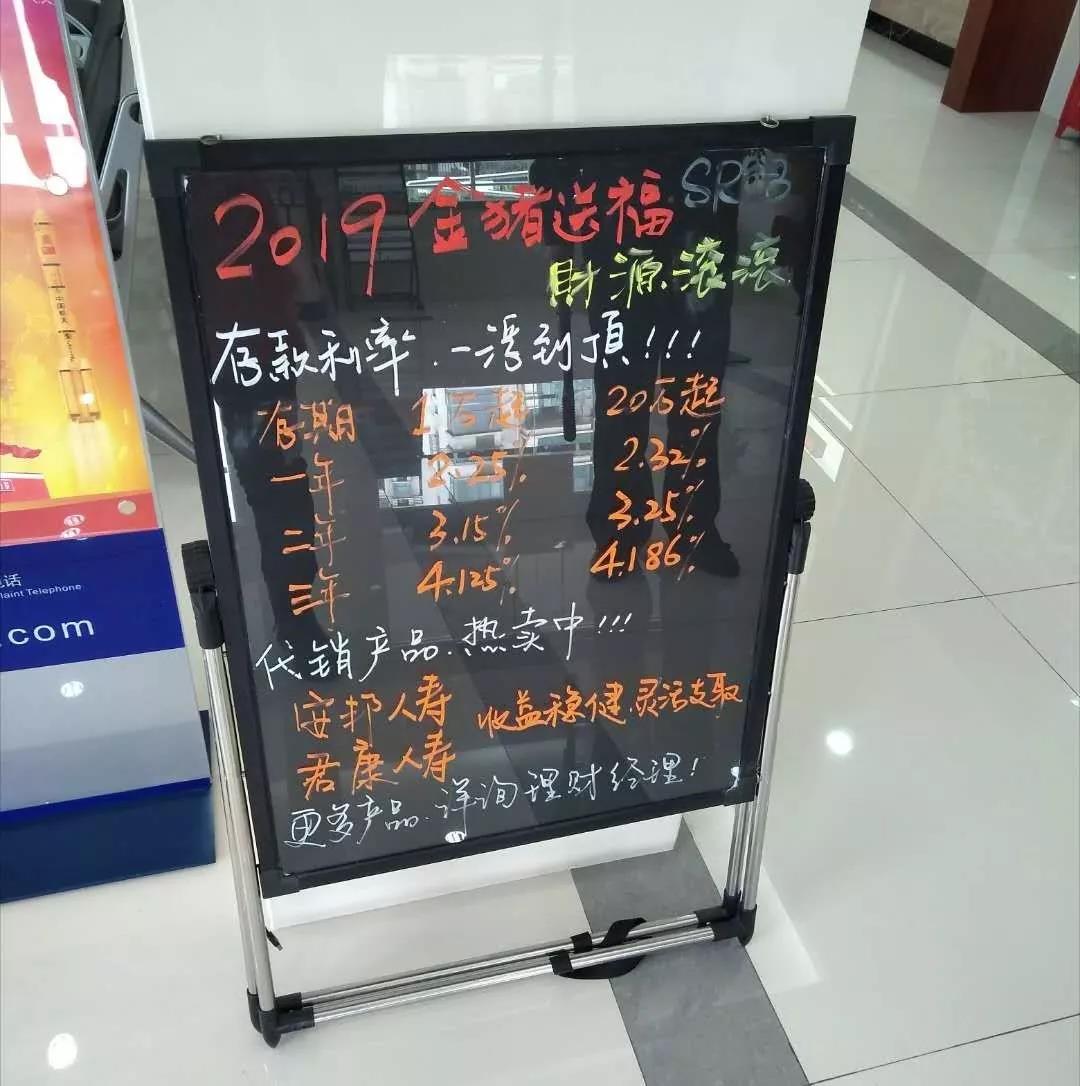 2019金猪送福
SRCB
財源滚滚
存款利率.一浮到頂!!!
存期 1万起 20万起
一年 2.25% 2.32%
二年 3.15% 3.25%
三年 4.125% 4.186%
代销产品.热卖中!!!
安邦人寿 收益稳健.灵活支取
君康人寿
更多产品.详询理财经理!
中国航天
话
laint Telephone
.com